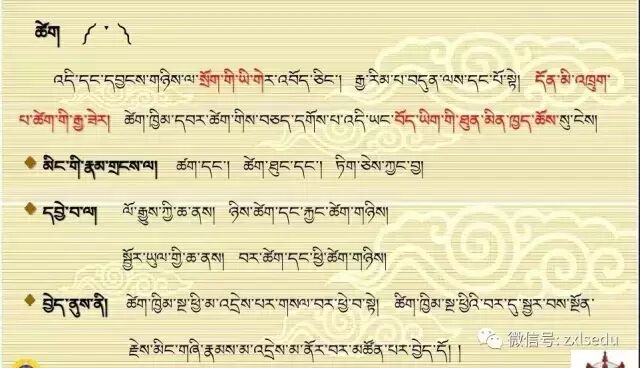 ཚེག ( ་ )
འདི་དང་དབྱངས་གཉིས་ལ་སྲོག་གི་ཡི་གེར་འབོད་ཅིང་། རྒྱ་རིམ་པ་བདུན་ལས་དང་པོ་སྟེ། དོན་མི་འཁྲུག་
པ་ཚེག་གི་རྒྱ་ཟེར། ཚེག་ཁྱིམ་དབར་ཚེག་གིས་བཅད་དགོས་པ་འདི་ཡང་བོད་ཡིག་གི་ཐུན་མིན་ཁྱད་ཆོས་སུ་ངེས།
མིང་གི་རྣམ་གྲངས་ལ། ཚག་དང་། ཚེག་ཐུང་དང་། ཏིག་ཅེས་ཀྱང་བྱ།
དབྱེ་བ་ལ། ལོ་རྒྱུས་ཀྱི་ཆ་ནས། ཉིས་ཚེག་དང་རྐྱང་ཚེག་གཉིས།
སྦྱོར་ཡུལ་གྱི་ཆ་ནས། བར་ཚེག་དང་ཕྱི་ཚེག་གཉིས།
བྱེད་ནུས་ནི། ཚེག་ཁྱིམ་སྔ་ཕྱི་མ་འདྲེས་པར་གསལ་བར་ཕྱེ་བ་སྟེ། ཚིག་ཁྱིམ་སྔ་ཕྱིའི་བར་དུ་སྦྱར་བས་སྔོན་
རྗེས་མིང་གཞི་རྣམས་མ་འདྲེས་མ་ནོར་བར་མཚོན་པར་བྱེད་དོ། །
微信号: zxlsedu